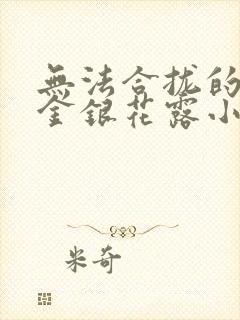 無法合拢的
金銀花露小
米奇